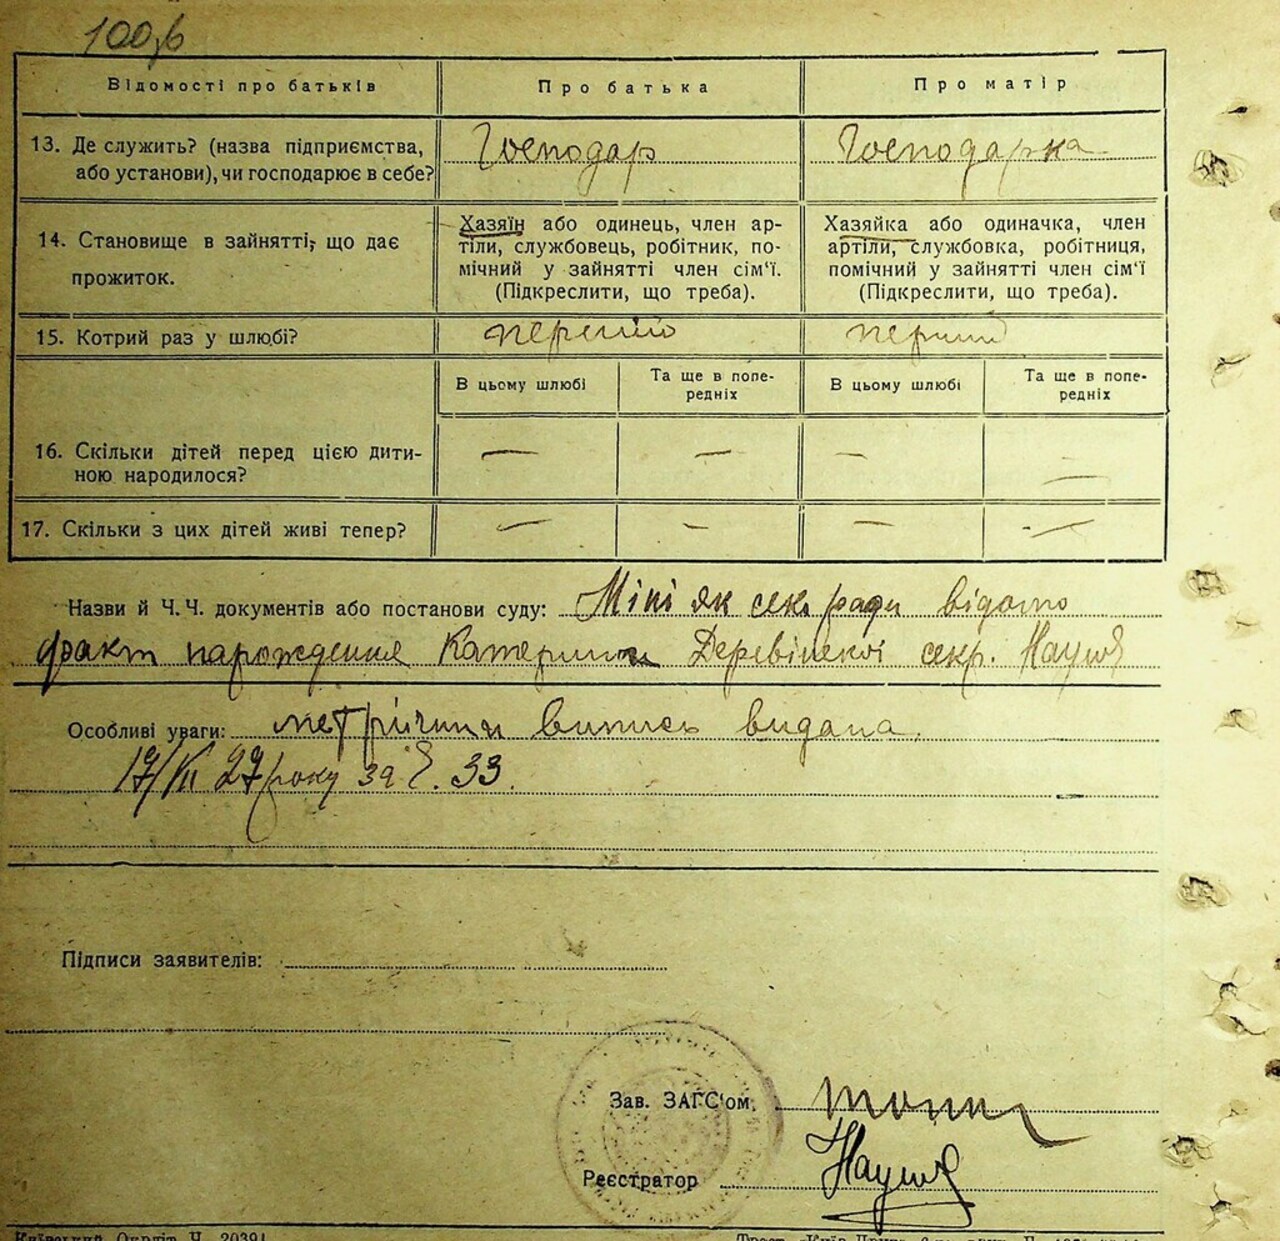 100зв
Відомості про батьків
Про батька
Про матір
13. Де служить? (назва підприємства,
або установи), чи господарює в себе?
Господар
Господарка
14. Становище в зайнятті, що дає
прожиток.
Хазяїн або одинець, член ар-
тіли, службовець, робітник, по-
мічний у зайнятті член сім'ї.
(Підкреслити, що треба).
Хазяйка або одиначка, член
артіли, службовка, робітниця,
помічний у зайнятті член сім'ї
(Підкреслити, що треба).
15. Котрий раз у шлюбі?
перший
перший
В цьому шлюбі
Та ще в попе-
редніх
В цьому шлюбі
Та ще в попе-
редніх
16. Скільки дітей перед цією дити-
ною народилося?
— — — —
17. Скільки з цих дітей живі тепер?
— — — —
Назви й Ч. Ч. документів або постанови суду: Міні як секр ради відомо
факт народження Катерини секр.
Особливі уваги: метрична випись видана.
17/ 27 року за Ч. 33.
Підписи заявителів:
Зав. ЗАГС'ом
Реєстратор
Київський Окрліт Ч. 20391